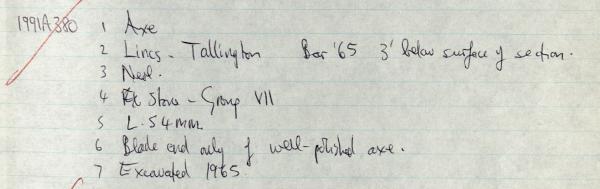 1991A380 1 Axe
2 Lincs - Tallington Bar '65 3' below surface of section.
3 Neol.
4 Stone - Group VII
5 L. 54mm
6 Blade end only of well-polished axe.
7 Excavated 1965.